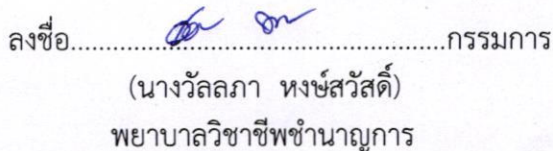 ลงชื่อ..........................................................กรรมการ
(นางวัลลภา หงษ์สวัสดิ์)
พยาบาลวิชาชีพชำนาญการ